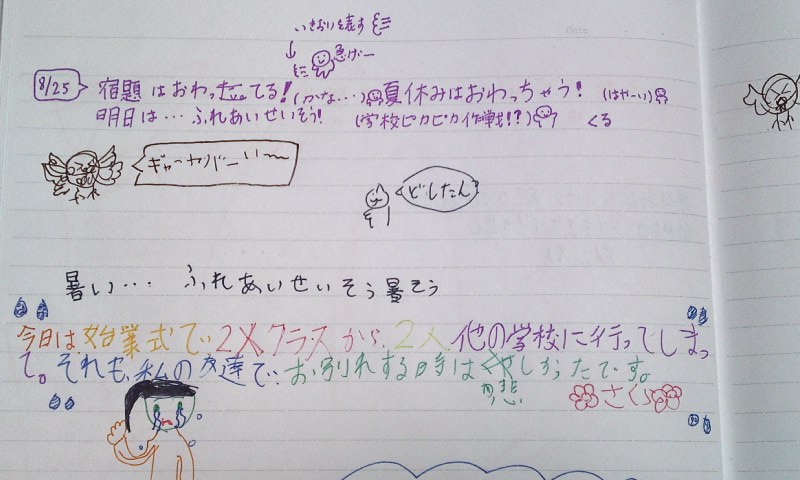 いきおいを表す
↓ 急げー
8/25 宿題はおわってる!(かな…)夏休みはおわっちゃう!(はやーい)
明日は…ふれあいせいそう!(学校ピカピカ作戦!?)くる
どしたん?
暑い… ふれあいせいそう暑そう
今日は、始業式で、2人クラスから、2人、他の学校に行ってしまっ
て。それも、私の友達で、お別れする時は悲しかったです。
さくら